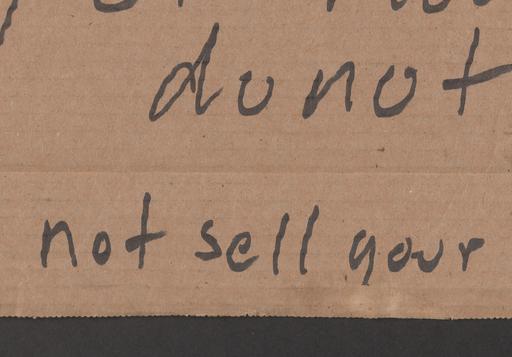 do not
not sell your